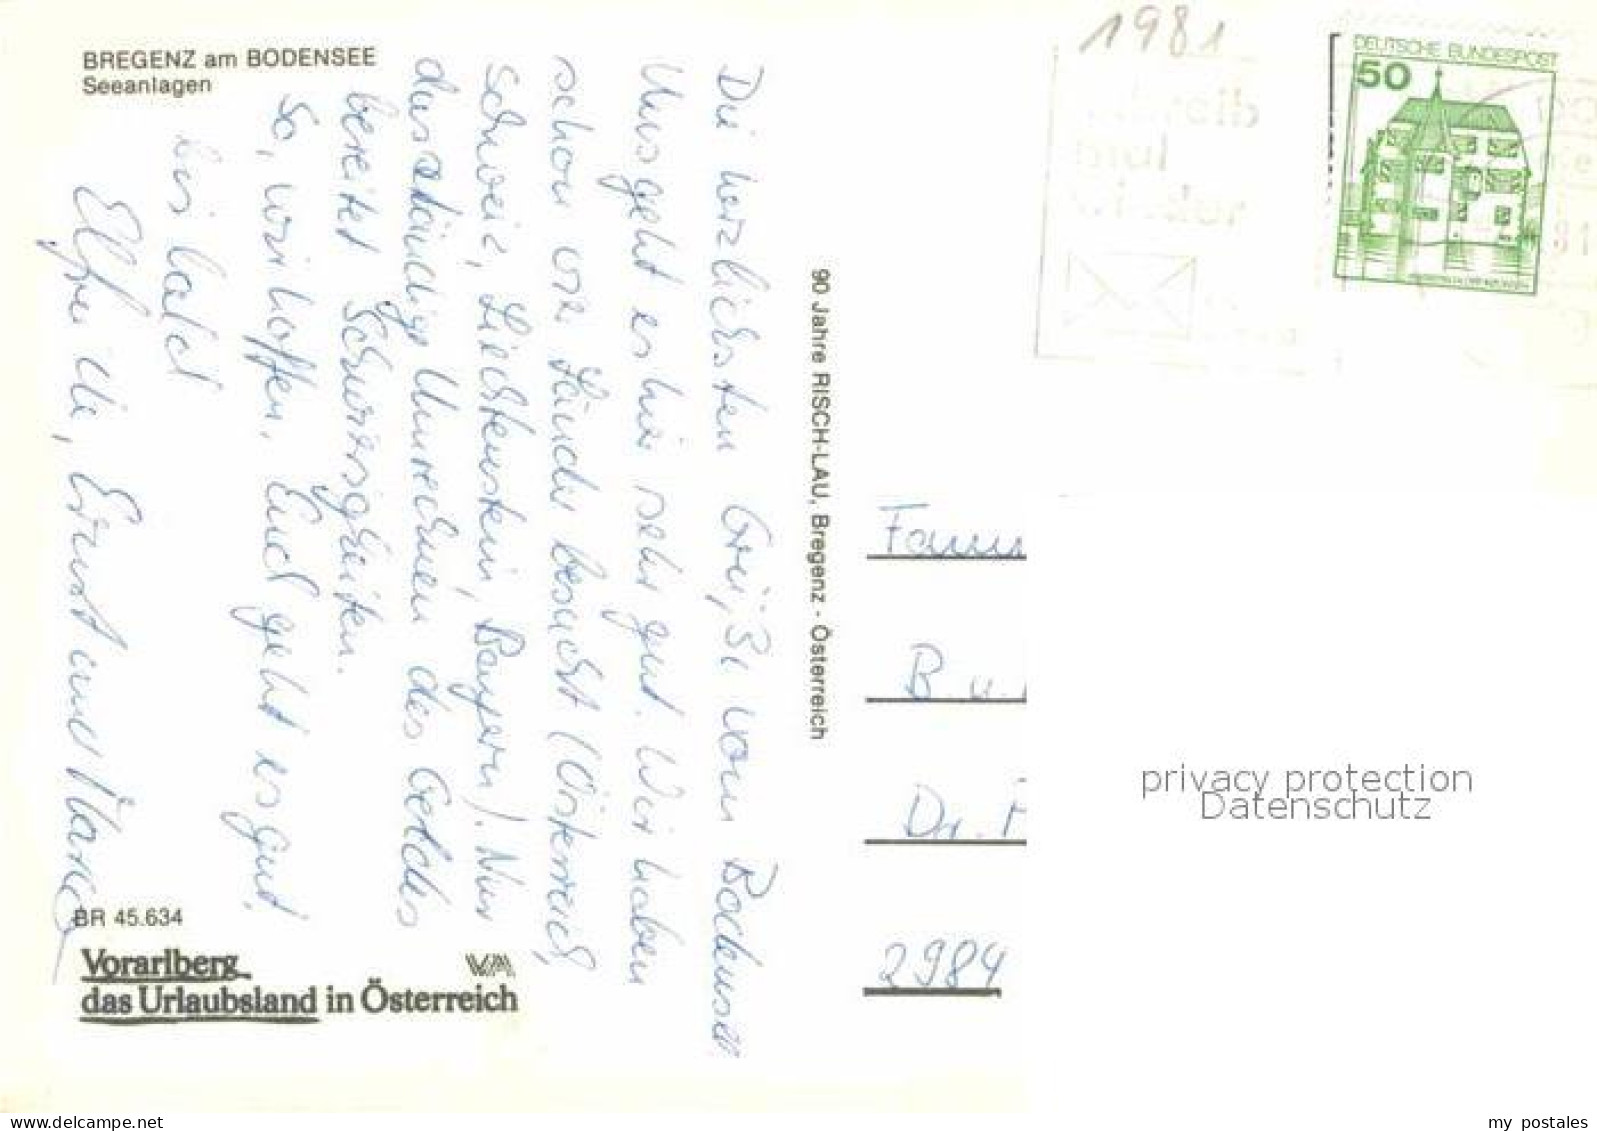 BREGENZ am BODENSEE
Seeanlagen
Die herzlichsten Grüße vom Bodensee
Uns geht es hier sehr gut. Wir haben
schon vier Länder besucht (Österreich,
Schweiz, Liechtenstein, Bayern). Nur
das ständige Umrechnen des Geldes
bereitet Schwierigkeiten.
So, wir hoffen, Euch geht es gut.
bis bald
Ernst und
BR 45.634
Vorarlberg
das Urlaubsland in Österreich
90 Jahre RISCH-LAU, Bregenz · Österreich
1981
DEUTSCHE BUNDESPOST
50
Schreib
mal
wieder
81
B u.
Dr.
2984
privacy protection
Datenschutz
delcampe.net
my postales